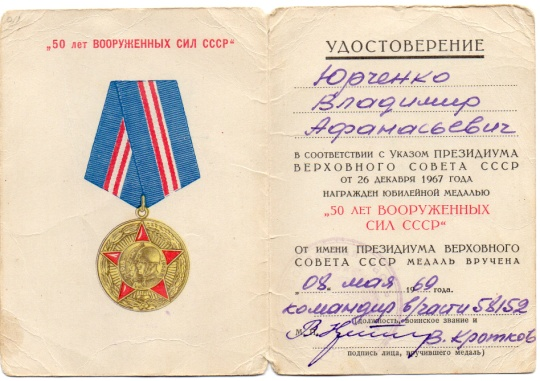 „50 лет ВООРУЖЕННЫХ СИЛ СССР“
УДОСТОВЕРЕНИЕ
Юрченко
Владимир
Афанасьевич
В СООТВЕТСТВИИ С УКАЗОМ ПРЕЗИДИУМА
ВЕРХОВНОГО СОВЕТА СССР
ОТ 26 ДЕКАБРЯ 1967 ГОДА
НАГРАЖДЕН ЮБИЛЕЙНОЙ МЕДАЛЬЮ
„50 ЛЕТ ВООРУЖЕННЫХ
СИЛ СССР“
ОТ ИМЕНИ ПРЕЗИДИУМА ВЕРХОВНОГО
СОВЕТА СССР МЕДАЛЬ ВРУЧЕНА
„08 мая 1969 года.
командир в/части 58152
(должность, воинское звание и
М. П. В. Кротков
подпись лица, вручившего медаль)